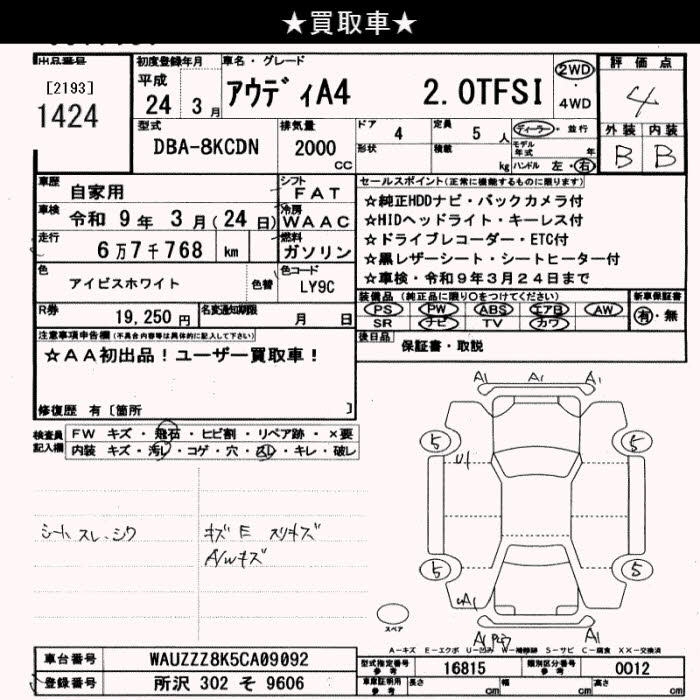 ★買取車★
出品番号
[2193]
1424
初度登録年月
平成
24 3 月
車名・グレード
アウディA4 2.0TFSI
2WD
・
4WD
評価点
4
外装 内装
B B
型式
DBA-8KCDN
排気量
2000
cc
ドア
4
形状
定員
5 人
積載
kg
ディーラー・並行
モデル
年式 年
ハンドル 左・右
車歴
自家用
シフト
FAT
車検
令和 9 年 3 月 (24 日)
冷房
WAAC
走行
6 万 7 千 768 km
燃料
ガソリン
色
アイビスホワイト
色替
色コード
LY9C
R券
19,250 円
名変通知期限
月 日
セールスポイント(正常に機能するものに限ります)
☆純正HDDナビ・バックカメラ付
☆HIDヘッドライト・キーレス付
☆ドライブレコーダー・ETC付
☆黒レザーシート・シートヒーター付
☆車検・令和9年3月24日まで
装備品 (純正品に限り○をつけてください)
PS PW ABS エアB AW
SR ナビ TV カワ
新車保証書
有・無
後日品
保証書・取説
注意事項申告欄(不具合内容等は具体的に記入して下さい)
☆AA初出品!ユーザー買取車!
修復歴 有 [箇所 ]
検査員
記入欄
FW キズ・飛石・ヒビ割・リペア跡・×要
内装 キズ・汚レ・コゲ・穴・スレ・キレ・破レ
シート スレ、シワ
キズ E スリキズ
A/Wキズ
A1 A1 A1
5 5
U1
5 5
A1
A1
スペア
A−キズ E−エクボ U−凹み W−補修跡 S−サビ C−腐食 XX−交換済
車台番号
WAUZZZ8K5CA09092
登録番号
所沢 302 そ 9606
型式指定番号
参考
16815
類別区分番号
参考
0012
車庫証明用
参考
長さ cm
幅 cm
高さ cm